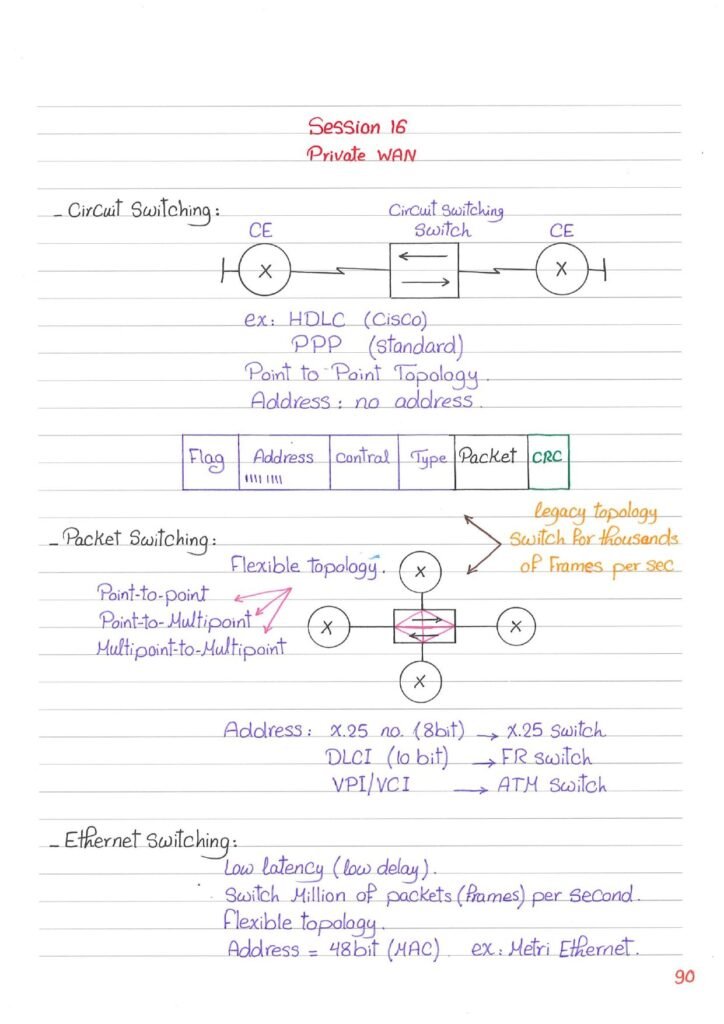 Session 16
Private WAN
- Circuit Switching:
Circuit Switching
CE Switch CE
X X
ex: HDLC (Cisco)
PPP (standard)
Point to Point Topology.
Address: no address.
Flag Address Control Type Packet CRC
|||| ||||
legacy topology
- Packet Switching: Switch for thousands
Flexible topology. X of Frames per sec
Point-to-point
Point-to-Multipoint X X
Multipoint-to-Multipoint
X
Address: X.25 no. (8bit) → X.25 Switch
DLCI (10 bit) → FR switch
VPI/VCI → ATM Switch
- Ethernet Switching:
Low latency (low delay).
Switch Million of packets (frames) per second.
Flexible topology.
Address = 48bit (MAC) ex: Metri Ethernet.
90